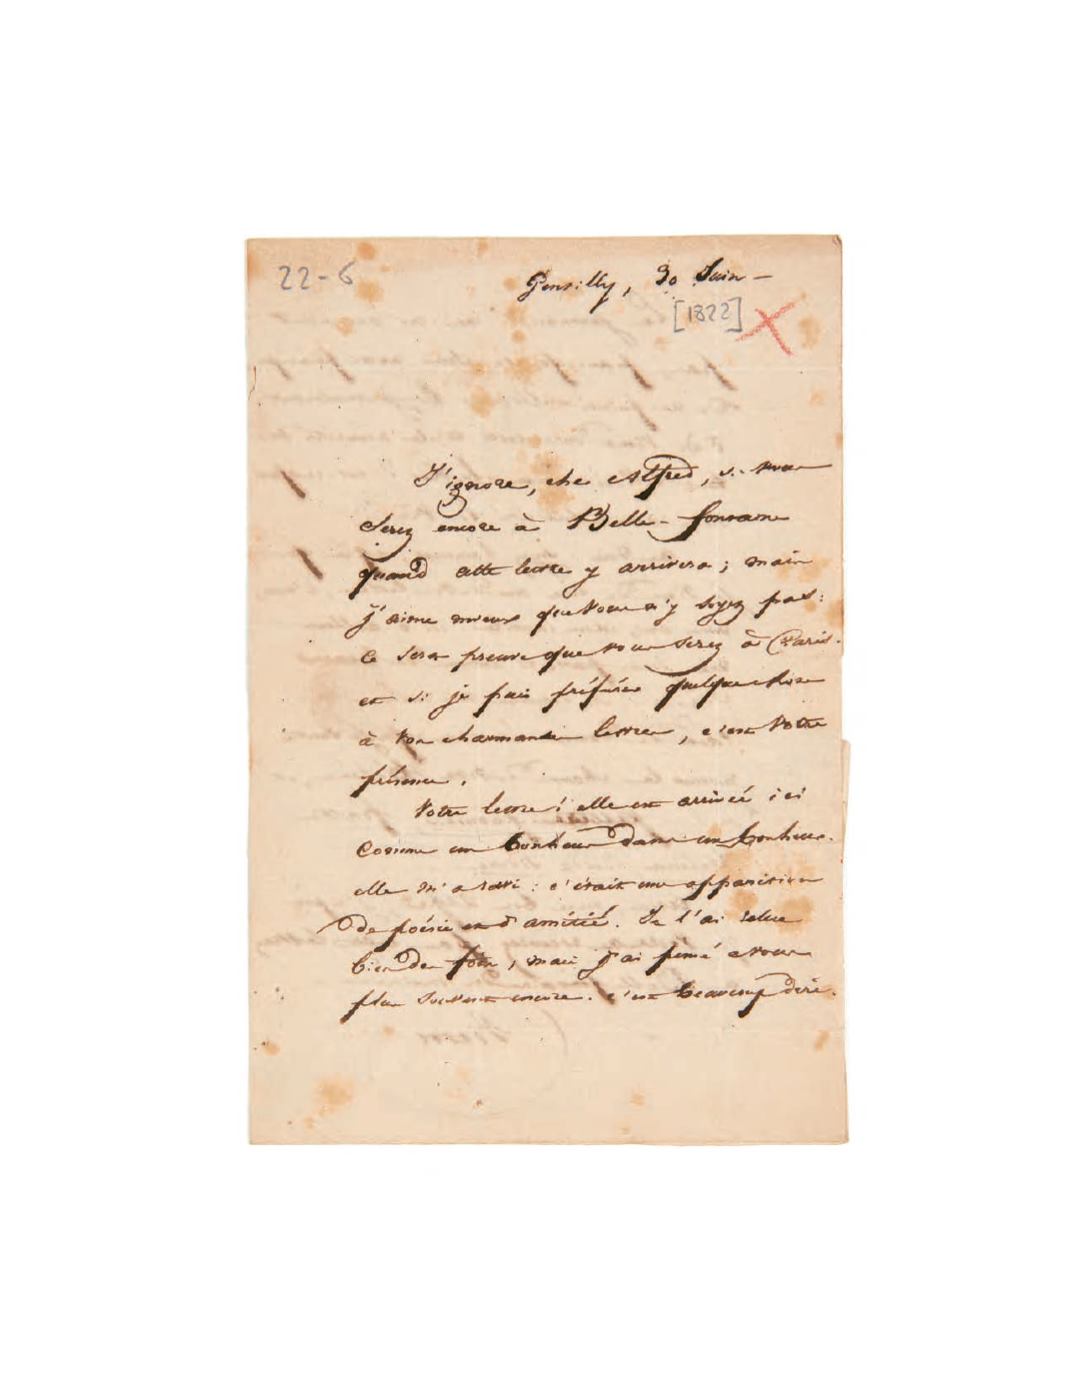 22-6
Gentilly, 30 Juin -
[1822]
J'ignore, cher Alfred, si vous
serez encore à Belle-fontaine
quand cette lettre y arrivera ; mais
j'aime mieux que vous n'y soyez pas :
ce sera preuve que vous serez à Paris.
et si je puis préférer quelque chose
à vos charmantes lettres, c'est votre
présence.
Votre lettre ! elle est arrivée ici
comme un bonheur dans un bonheur.
elle m'a ravi : c'était une apparition
de poésie et d'amitié. Je l'ai relue
bien des fois, mais j'ai pensé à vous
plus souvent encore. c'est beaucoup dire.